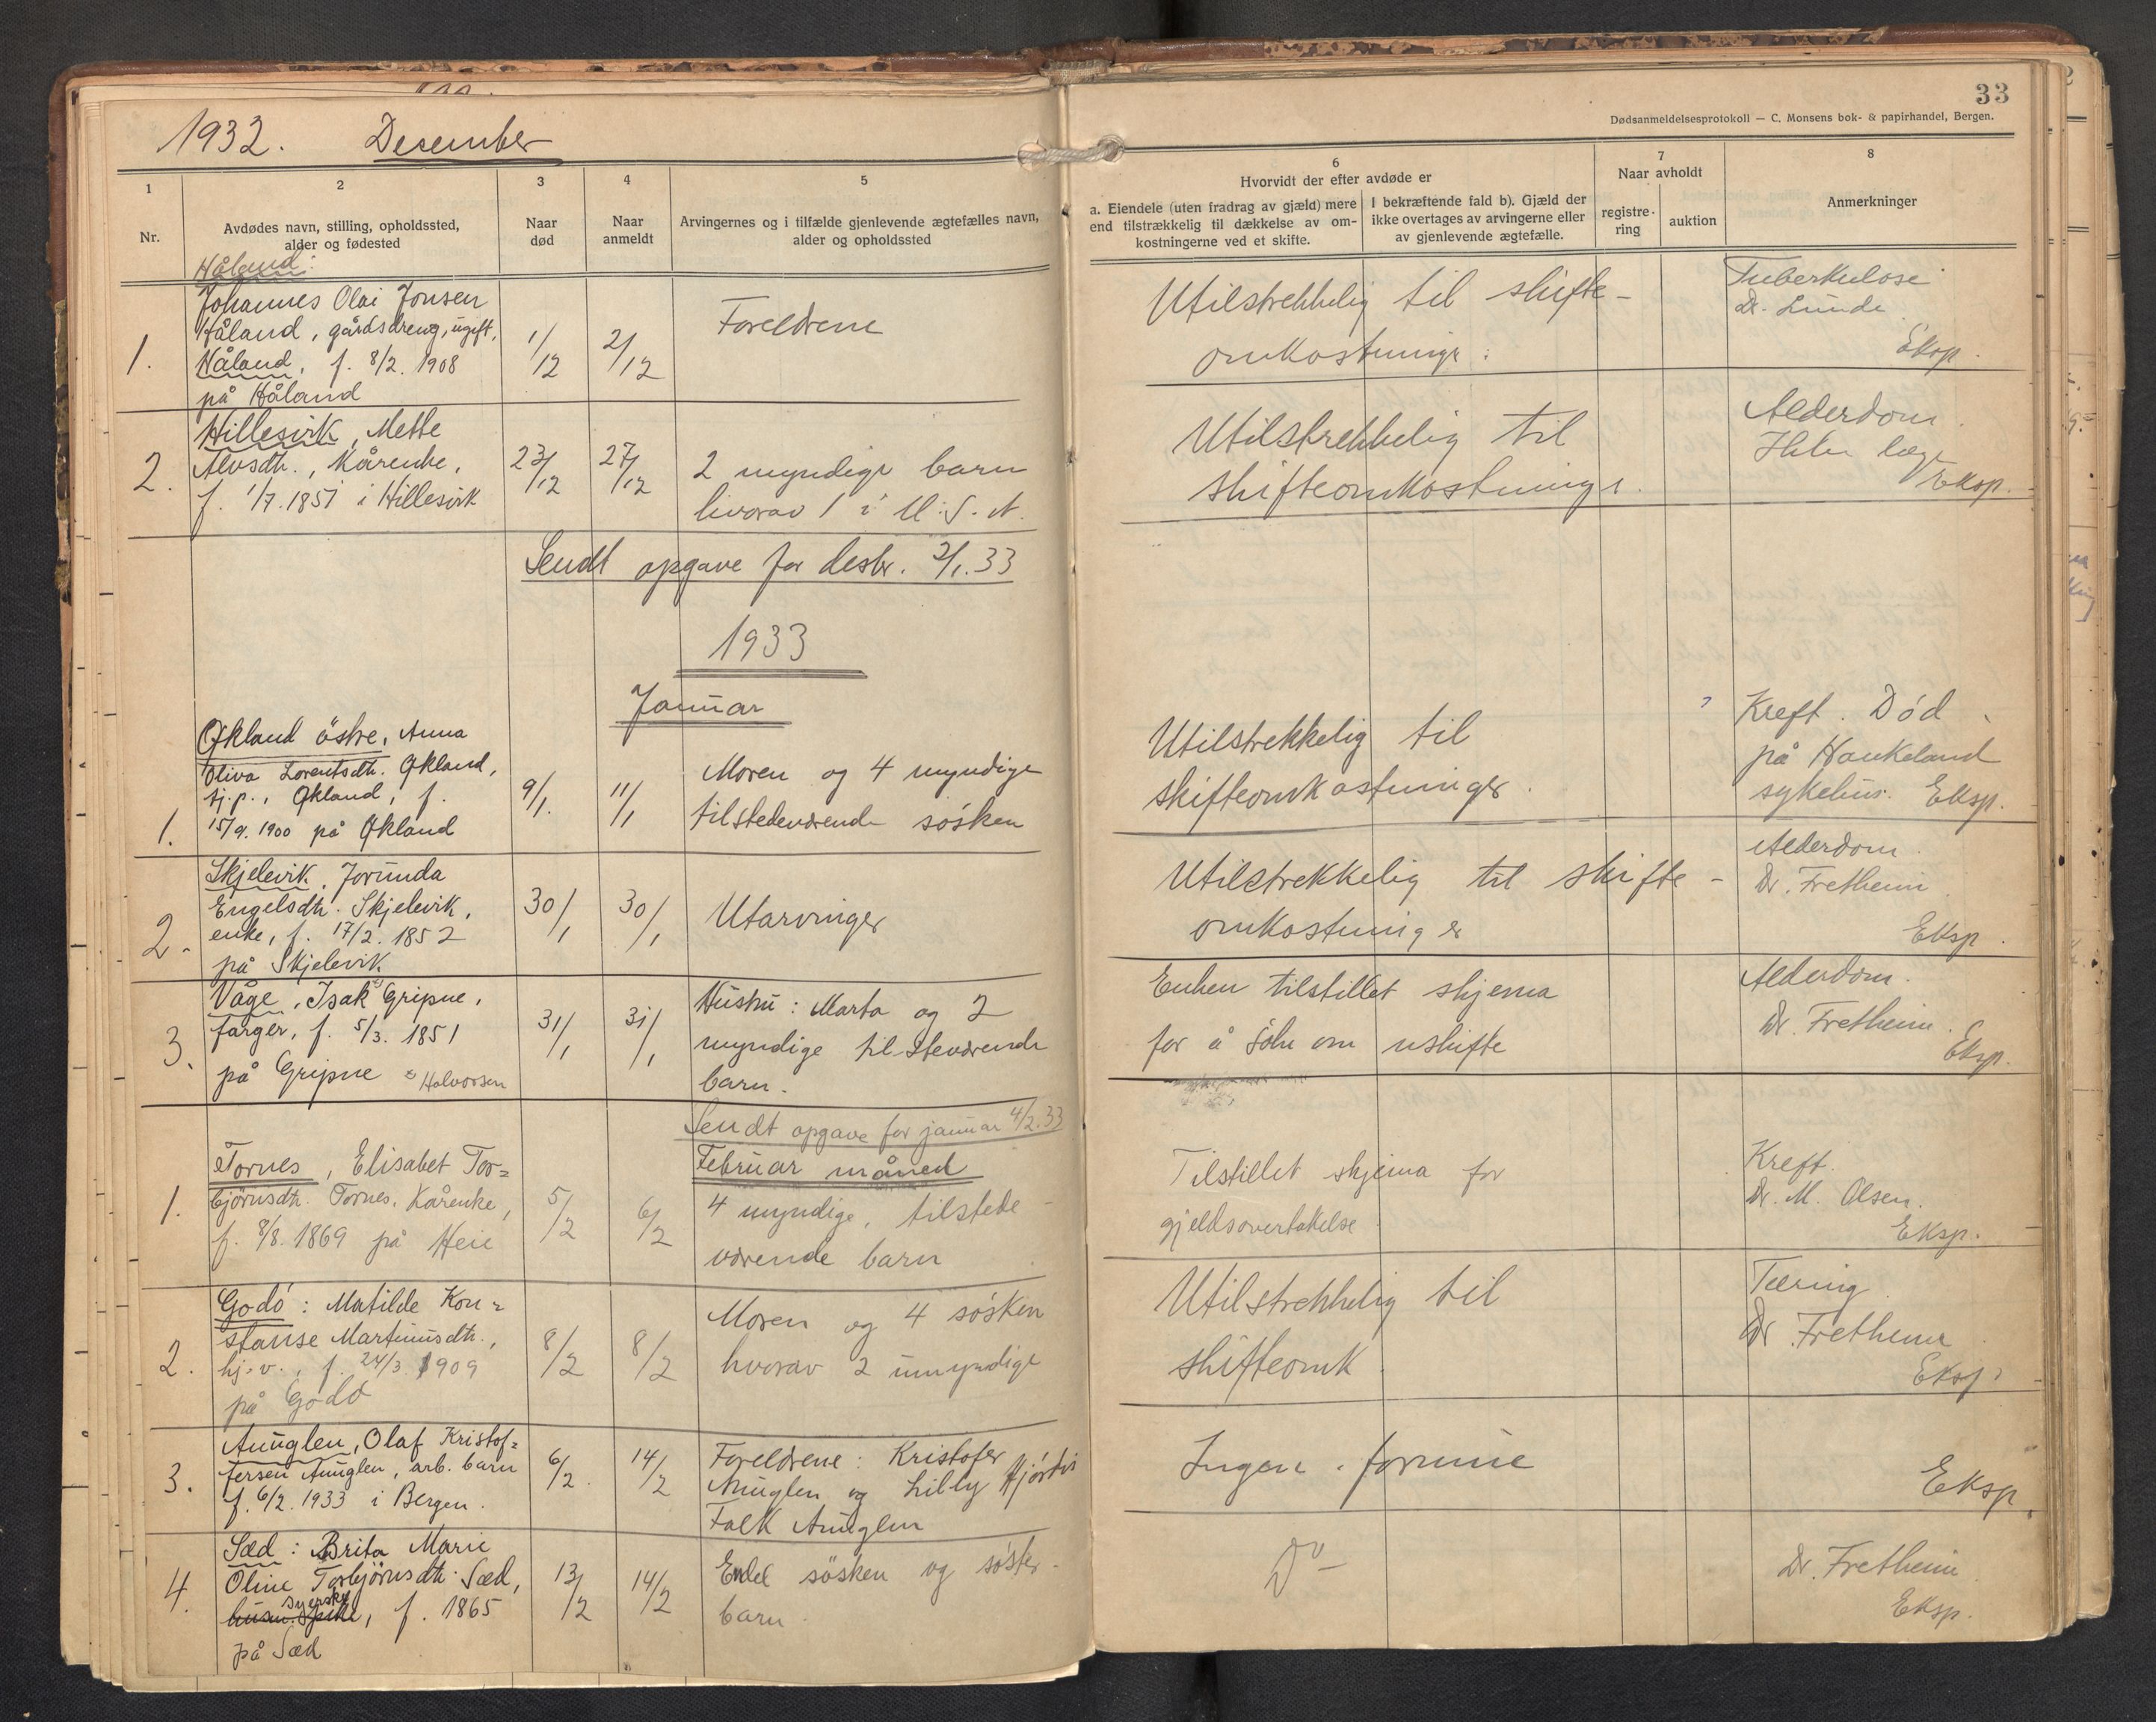 1932. Desember
1
2
3
4
5
Nr.
Avdødes navn, stilling, opholdssted,
alder og fødested
Naar
død
Naar
anmeldt
Arvingernes og i tilfælde gjenlevende ægtefælles navn,
alder og opholdssted
Håland:
Johannes Olai Jonsen
Håland, gårdsdreng, ugift,
1.
Håland, f. 8/2. 1908
på Håland
1/12
2/12
Foreldrene
Hillesvik, Mette
2.
Alvsdtr., Kårenke,
f. 1/7. 1851 i Hillesvik
23/12
27/12
2 myndige barn
hvorav 1 i U.S.A.
Sendt opgave for desbr. 2/1.33
1933
Januar
Økland östre, Anna
Oliva Lorentsdtr. Økland,
tj.p., Økland, f.
1.
15/9. 1900 på Økland
9/1.
11/1
Moren og 4 myndige
tilstedeværende søsken
Skjelevik, Jorunda
Engelsdtr. Skjelevik,
2.
enke, f. 17/2. 1852
på Skjelevik
30/1
30/1
Utarvinger
Våge, Isak Gripne,
farger, f. 5/3. 1851
3.
på Gripne
Halvorsen
31/1
31/1
Hustru: Marta og 2
myndige til steværende
barn.
Sendt opgave for januar 4/2.33
Februar måned
Tornes, Elisabet Tor=
1.
björnsdtr. Tornes, Kårenke,
f. 8/8. 1869 på Heie
5/2
6/2
4 myndige, tilstede-
værende barn
Godö: Matilde Kon=
stanse Martinusdtr.,
2.
hj.v., f. 24/3. 1909
på Godö
8/2
8/2
Moren og 4 søsken
hvorav 2 umyndige
Anuglen, Olaf Kristof=
3.
fersen Anuglen, arb. barn
f. 6/2. 1933 i Bergen.
6/2.
14/2
Foreldrene: Kristofer
Anuglen og Lilly Hjördis
Falk Anuglen
Sæd: Brita Marie
4.
Oline Torbjörnsdtr. Sæd,
syerske
f. 1865
på Sæd
13/2
14/2
Endel søsken og søster-
barn.
33
Dødsanmeldelsesprotokoll — C. Monsens bok- & papirhandel, Bergen.
6
Hvorvidt der efter avdøde er
a. Eiendele (uten fradrag av gjæld) mere
end tilstrækkelig til dækkelse av om-
kostningerne ved et skifte.
I bekræftende fald b). Gjæld der
ikke overtages av arvingerne eller
av gjenlevende ægtefælle.
7
Naar avholdt
registre-
ring
auktion
8
Anmerkninger
Utilstrekkelig til skifte-
omkostninger.
Tuberkulose
Dr. Lunde
Eksp.
Utilstrekkelig til
skifteomkostninger.
Alderdom.
Ikke læge
Eksp.
Utilstrekkelig til
skifteomkostninger.
Kreft. Död
på Haukeland
sykehus. Eksp.
Utilstrekkelig til skifte-
omkostninger
Alderdom.
Dr. Fretheim
Eksp.
Enken tilstillet skjema
for å søke om uskifte
Alderdom.
Dr. Fretheim.
Eksp.
Tilstillet skjema for
gjeldsovertakelse.
Kreft.
Dr. M. Olsen.
Eksp.
Utilstrekkelig til
skifteomk.
Tæring.
Dr. Fretheim
Eksp.
Ingen formue
Eksp.
Do -
Dr. Fretheim
Eksp.